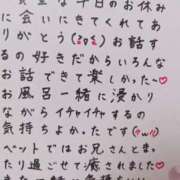 貴重な平日のお休み
に会いにきてくれてあり
がとう(≧◡≦)お話す
るの好きだからいろんな
お話できて楽しかった〜♡
お風呂一緒に浸かり
ながらイチャイチャするの
気持ちよかったです(*'ω'*)
ベットではお兄さんとまっ
たり過ごせて癒されました